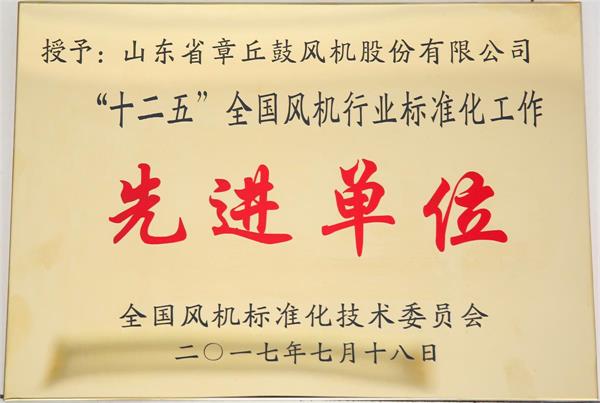 授予：山东省章丘鼓风机股份有限公司
“十二五”全国风机行业标准化工作
先进单位
全国风机标准化技术委员会
二〇一七年七月十八日